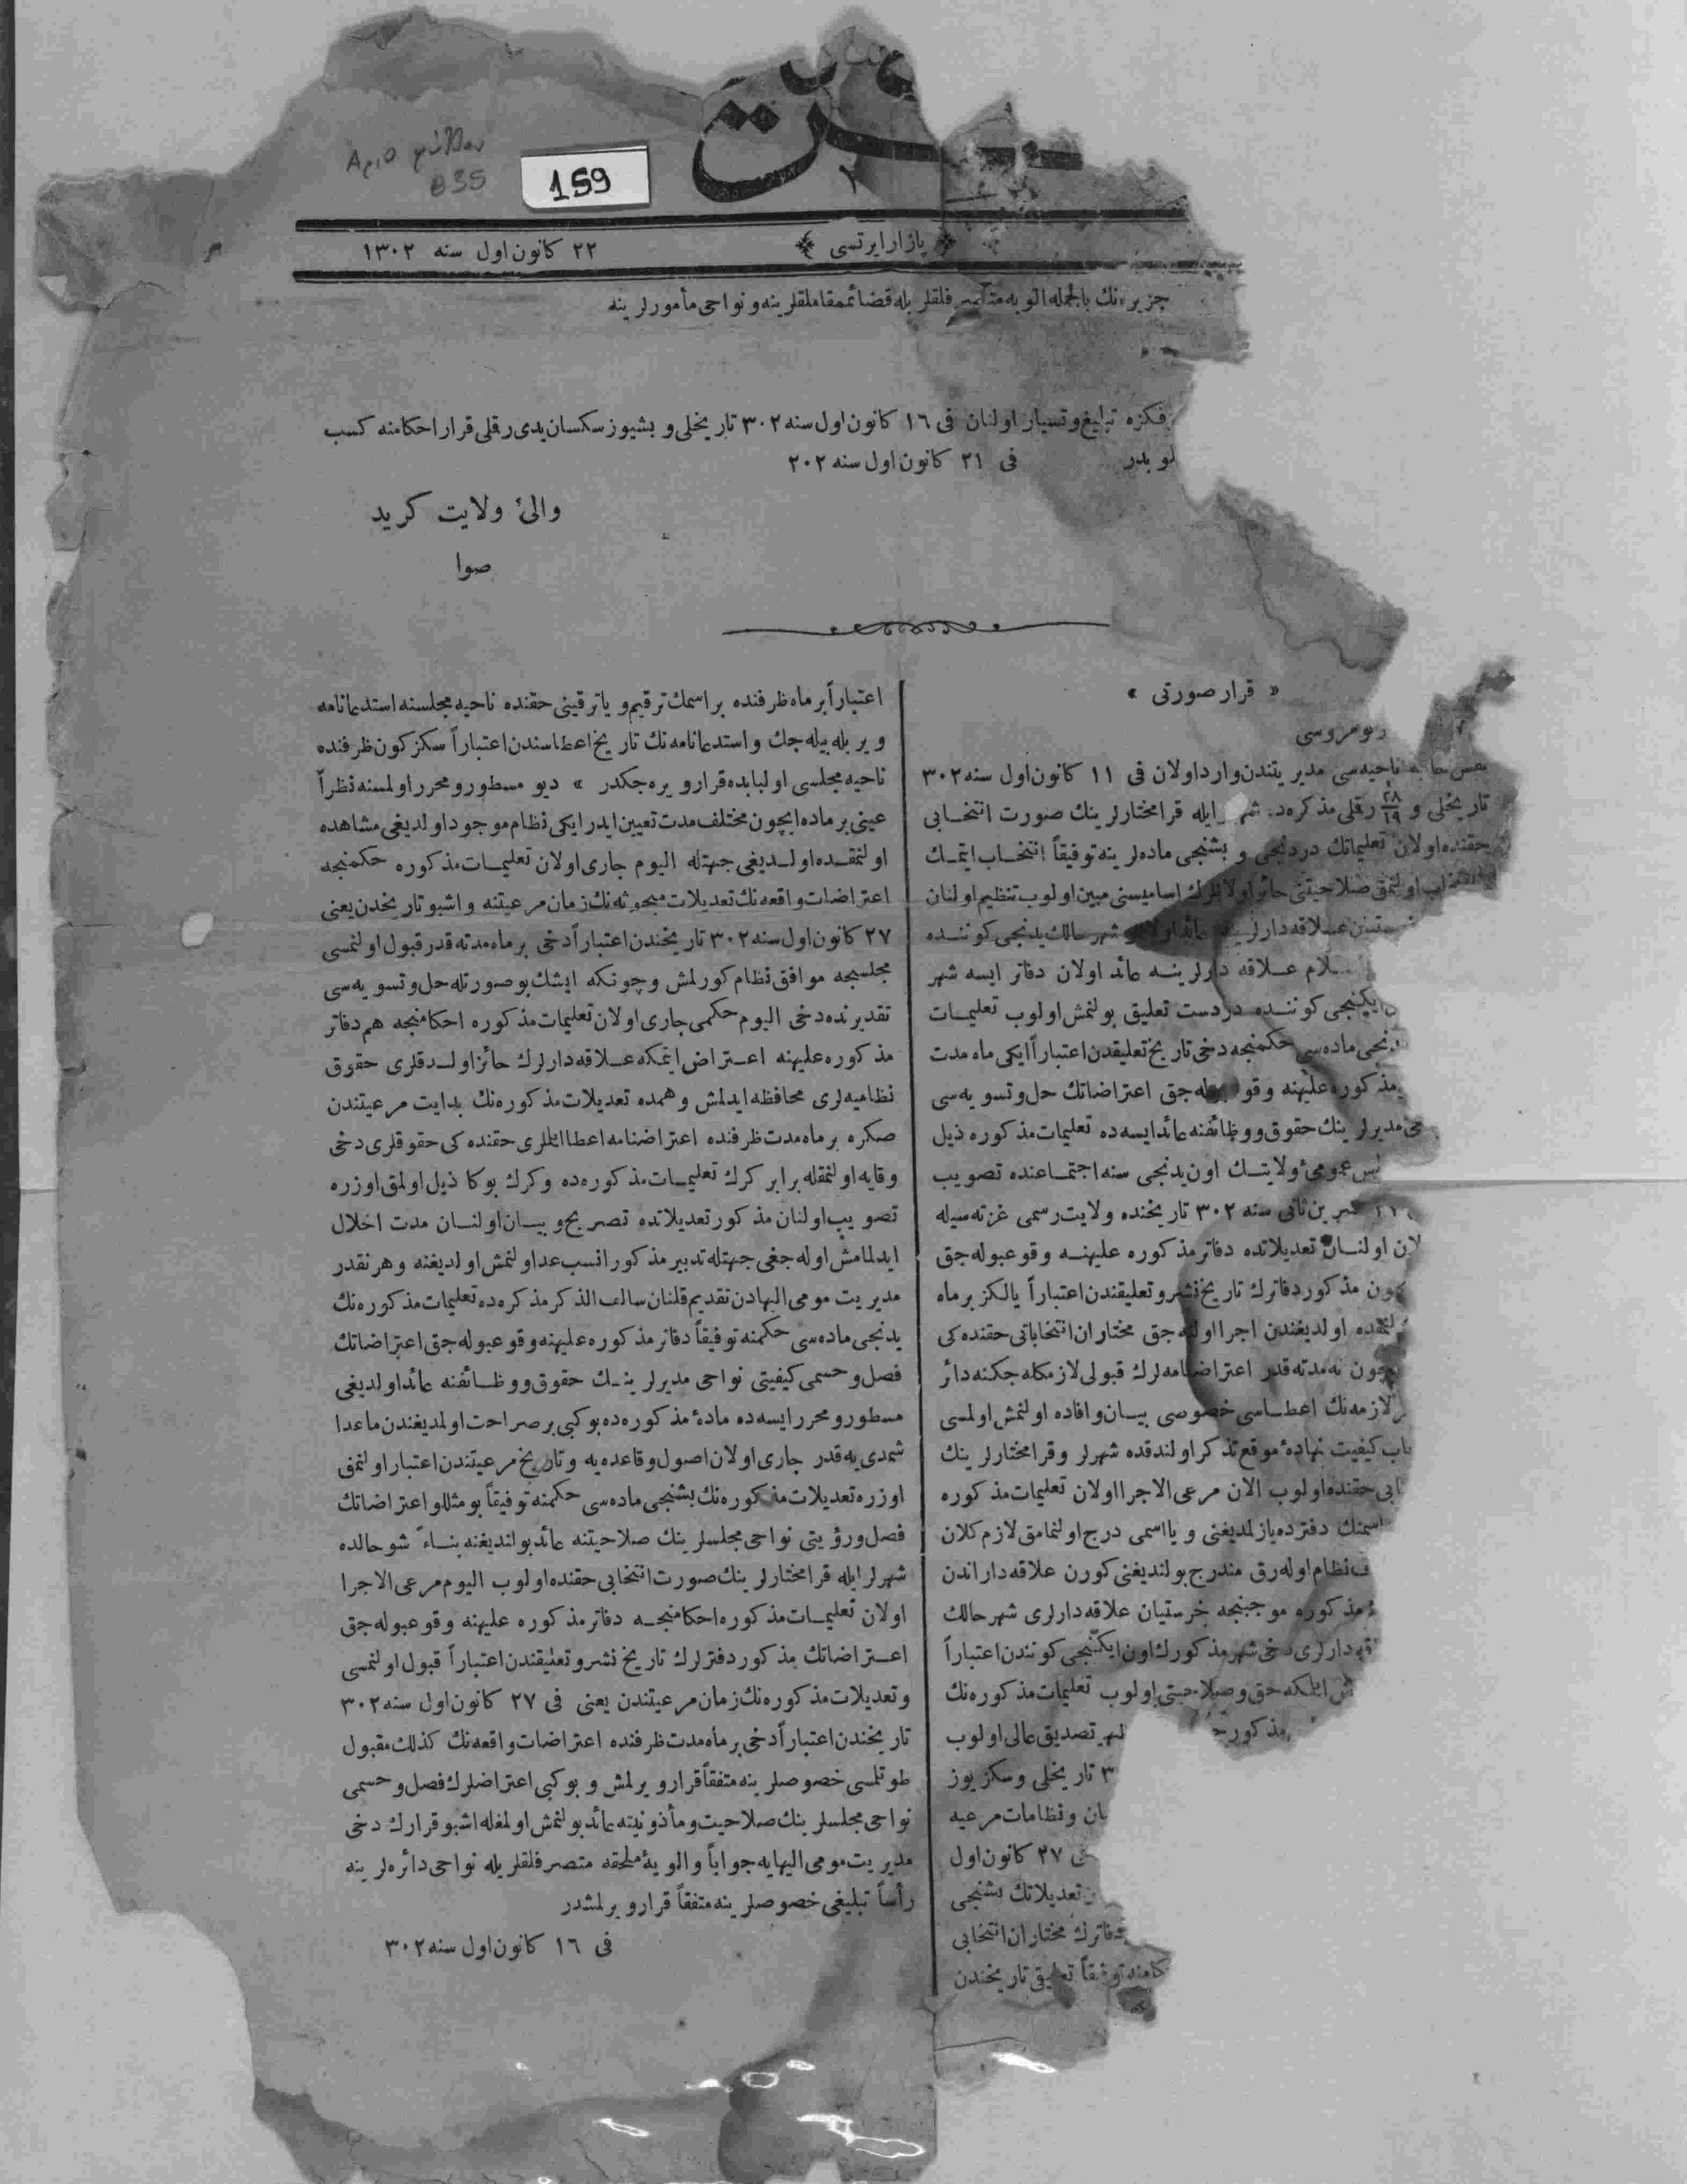 Αριθ
835
159
﴿ پازار ایرتسی ﴾
٢٢ كانون اول سنه ١٣٠٢
جزیره‌نك بالجمله الویه متصرفلقلریله قضا قائممقاملقلرینه و نواحی مأمورلرینه
تبلیغ و تسیار اولنان فی ١٦ كانون اول سنه ٣٠٢ تاریخلی و بشیوز سكسان یدی رقلی قرار احكامنه كسب
فی ٢١ كانون اول سنه ٢٠٢
والیٔ ولایت كرید
صوا
« قرار صورتی »
ناحیه‌سی مدیریتندن وارد اولان فی ١١ كانون اول سنه ٣٠٢
تاریخلی و ٢٨/١٩ رقلی مذكره‌ده شهر ایله قرا مختارلرینك صورت انتخابی
حقنده اولان تعلیماتك دردنجی و بشنجی ماده‌لرینه توفیقاً انتخاب ایتمك
اولنمق صلاحیتنی حائز اولانلرك اسامیسنی مبین اولوب تنظیم اولنان
علاقه‌دارلرینه عائد اولانلر شهر حالك یدنجی كوننده
علاقه دارلرینه عائد اولان دفاتر ایسه شهر
ایكنجی كوننده دردست تعلیق بولنمش اولوب تعلیمات
ماده‌سی حكمنجه دخی تاریخ تعلیقدن اعتباراً ایكی ماه مدت
مذكوره علیهنه وقوعبوله‌جق اعتراضاتك حل و تسویه‌سی
مدیرلرینك حقوق و وظائفنه عائد ایسه‌ده تعلیمات مذكوره ذیل
عمومیٔ ولایتك اون یدنجی سنه اجتماعنده تصویب
تشرین ثانی سنه ٣٠٢ تاریخنده ولایت رسمی غزته‌سیله
اولنان تعدیلاتده دفاتر مذكوره علیهنه وقوعبوله‌جق
مذكور دفاترك تاریخ نشر و تعلیقندن اعتباراً یالكز بر ماه
اولدیغندن اجرا اوله‌جق مختاران انتخاباتی حقنده‌كی
نه مدته قدر اعتراضنامه‌لرك قبولی لازمكله‌جكنه دائر
لازمه‌نك اعطاسی خصوصی بیان و افاده اولنمش اولمسی
كیفیت نهادهٔ موقع تذكر اولندقده شهرلر و قرا مختارلرینك
حقنده اولوب الان مرعی الاجرا اولان تعلیمات مذكوره
اسمنك دفترده یازلمدیغنی و یا اسمی درج اولنمامق لازم كلان
نظام اوله‌رق مندرج بولندیغنی كورن علاقه‌داراندن
مذكوره موجبنجه خرستیان علاقه‌دارلری شهر حالك
دارلری دخی شهر مذكورك اون ایكنجی كونندن اعتباراً
ایلمكه حق و صلاحیتی اولوب تعلیمات مذكوره‌نك
مذكور تصدیق عالی اولوب
٣ تاریخلی و سكز یوز
و نظامات مرعیه
٢٧ كانون اول
تعدیلاتك بشنجی
دفاترك مختاران انتخابی
توفیقاً تعلیق تاریخندن
اعتباراً بر ماه ظرفنده بر اسمك ترقیم و یا ترقینی حقنده ناحیه مجلسنه استدعانامه
ویریله‌بیله‌جك و استدعانامه‌نك تاریخ اعطاسندن اعتباراً سكز كون ظرفنده
ناحیه مجلسی اولبابده قرار ویره‌جكدر » دیو مسطور و محرر اولمسنه نظراً
عینی بر ماده ایچون مختلف مدت تعیین ایدر ایكی نظام موجود اولدیغی مشاهده
اولنمقده اولدیغی جهتله الیوم جاری اولان تعلیمات مذكوره حكمنجه
اعتراضات واقعه‌نك تعدیلات مبحوثه‌نك زمان مرعیتنه و اشبو تاریخدن یعنی
٢٧ كانون اول سنه ٣٠٢ تاریخندن اعتباراً دخی بر ماه مدته قدر قبول اولنمسی
مجلسجه موافق نظام كورلمش و چونكه ایشك بو صورتله حل و تسویه‌سی
تقدیرنده دخی الیوم حكمی جاری اولان تعلیمات مذكوره احكامنجه هم دفاتر
مذكوره علیهنه اعتراض ایتمكه علاقه‌دارلرك حائز اولدقلری حقوق
نظامیه‌لری محافظه ایدلمش و همده تعدیلات مذكوره‌نك بدایت مرعیتندن
صكره بر ماه مدت ظرفنده اعتراضنامه اعطا ایللری حقنده كی حقوقلری دخی
وقایه اولنمقله برابر كرك تعلیمات مذكوره‌ده و كرك بوكا ذیل اولمق اوزره
تصویب اولنان مذكور تعدیلاتده تصریح و بیان اولنان مدت اخلال
ایدلمامش اوله‌جغی جهتله تدبیر مذكور انسب عد اولنمش اولدیغنه و هر نقدر
مدیریت مومی الیهادن تقدیم قلنان سالف الذكر مذكره‌ده تعلیمات مذكوره‌نك
یدنجی ماده‌سی حكمنه توفیقاً دفاتر مذكوره علیهنه وقوعبوله‌جق اعتراضاتك
فصل و حسمی كیفیتی نواحی مدیرلرینك حقوق و وظائفنه عائد اولدیغی
مسطور و محرر ایسه‌ده مادهٔ مذكوره‌ده بوكبی بر صراحت اولمدیغندن ماعدا
شمدی‌یه قدر جاری اولان اصول و قاعده‌یه و تاریخ مرعیتندن اعتبار اولنمق
اوزره تعدیلات مذكوره‌نك بشنجی ماده‌سی حكمنه توفیقاً بو مثللو اعتراضاتك
فصل و رؤیتی نواحی مجلسلرینك صلاحیتنه عائد بولندیغنه بناءً شو حالده
شهرلر ایله قرا مختارلرینك صورت انتخابی حقنده اولوب الیوم مرعی الاجرا
اولان تعلیمات مذكوره احكامنجه دفاتر مذكوره علیهنه وقوعبوله‌جق
اعتراضاتك مذكور دفترلرك تاریخ نشر و تعلیقندن اعتباراً قبول اولنمسی
و تعدیلات مذكوره‌نك زمان مرعیتندن یعنی فی ٢٧ كانون اول سنه ٣٠٢
تاریخندن اعتباراً دخی بر ماه مدت ظرفنده اعتراضات واقعه‌نك كذلك مقبول
طوتلمسی خصوصلرینه متفقاً قرار ویرلمش و بوكبی اعتراضلرك فصل و حسمی
نواحی مجلسلرینك صلاحیت و مأذونیتنه عائد بولنمش اولمغله اشبو قرارك دخی
مدیریت مومی الیهایه جواباً و الویهٔ ملحقه متصرفلقلریله نواحی دائره‌لرینه
رأساً تبلیغی خصوصلرینه متفقاً قرار ویرلمشدر
فی ١٦ كانون اول سنه ٣٠٢